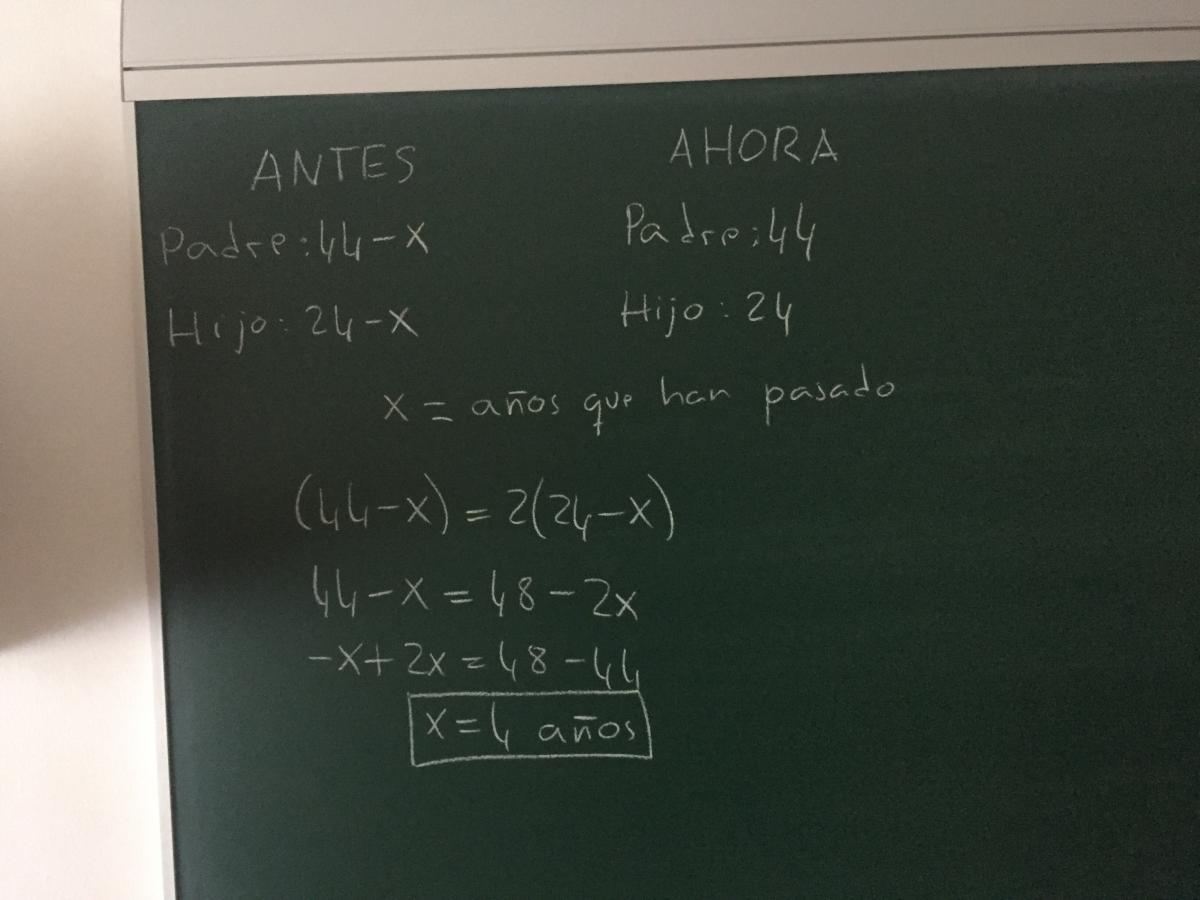 ANTES AHORA
Padre: 44-x Padre: 44
Hijo: 24-x Hijo: 24
x = años que han pasado
(44-x) = 2(24-x)
44-x = 48-2x
-x+2x = 48-44
x = 4 años